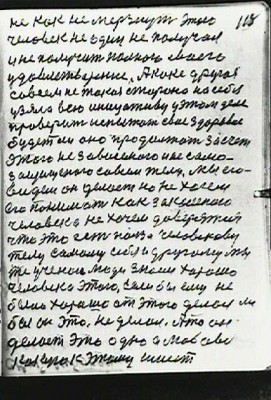 не как не мерзнут этого 118
человек не один не получал
и не получит полного своего
удовлетворение, А как другая
совсем не такая сторона на себя
взяла всю инициативу в этом деле
проверить испытать свое здоровье
будет ли оно продолжать за счет
этого не зависимого и не само-
защищенного совсем телу, мы его
видим он делает но не хотем
его понимать как такового
человека не хочем доверятся
что это есть польза человекову
телу самому себя и другому мы
те ученые люди знаем хорошо
человека этого, если бы ему не
было хорошо от этого делал ли
бы он это, не делал. А то он
делает это одно а мы совсем
к этому имеет